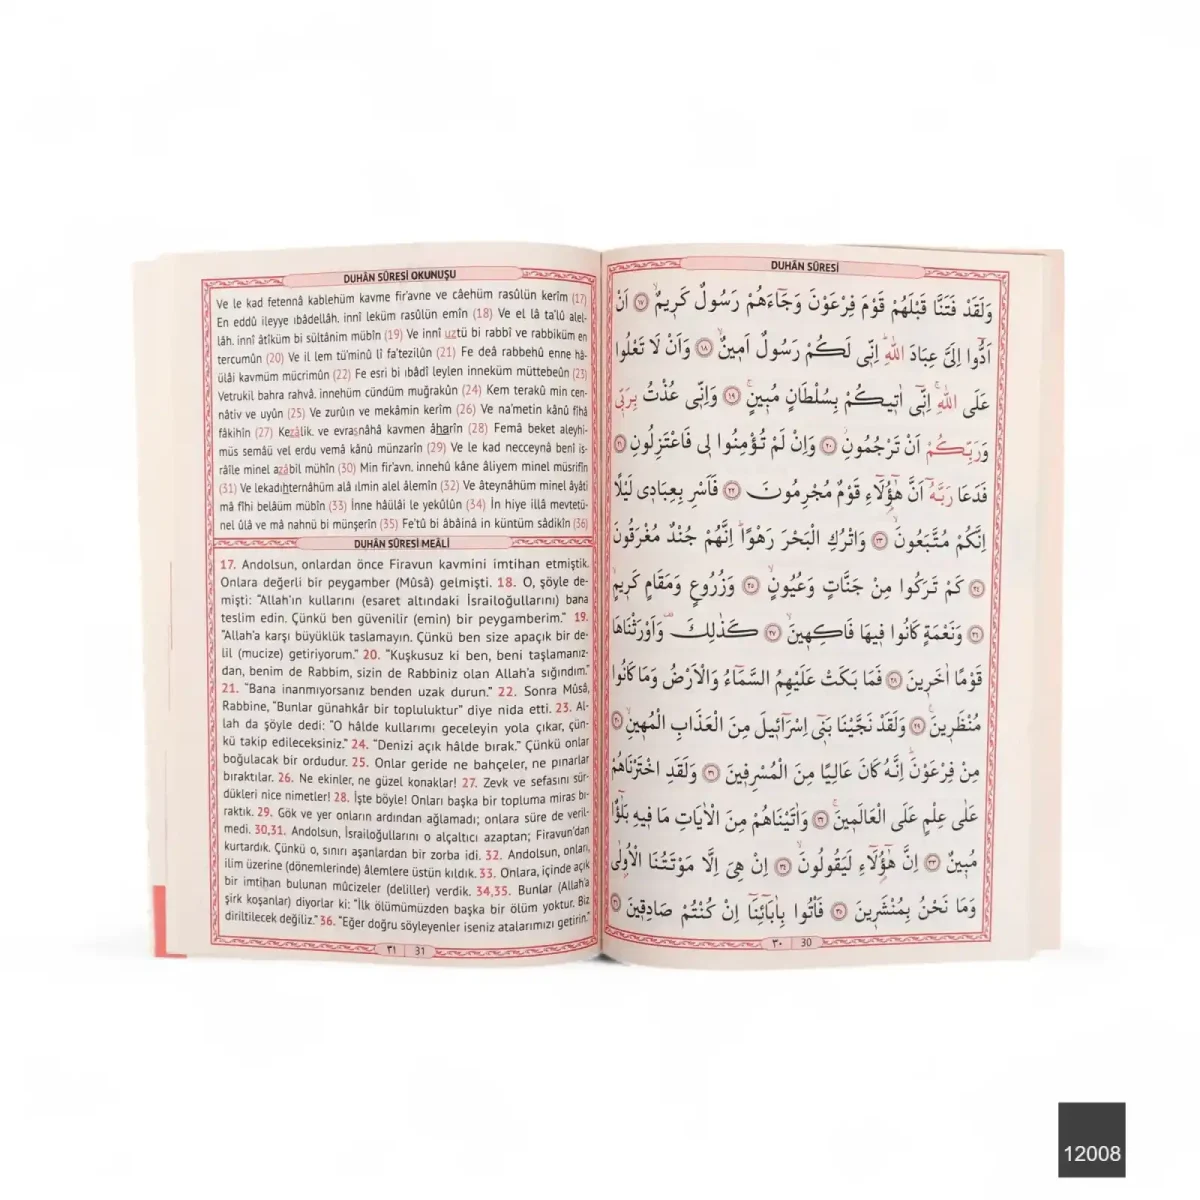 DUHÂN SÛRESİ OKUNUŞU
Ve le kad fetennâ kablehüm kavme fir'avne ve câehüm rasûlün kerîm (17)
En eddû ileyye ıbâdellâh. innî leküm rasûlün emîn (18) Ve el lâ ta'lû alel-
lâh. innî âtîküm bi sültânim mübîn (19) Ve innî uztü bi rabbî ve rabbiküm en
tercumûn (20) Ve il lem tü'minû lî fa'tezilûn (21) Fe deâ rabbehû enne hâ-
ülâi kavmüm mücrimûn (22) Fe esri bi ıbâdî leylen inneküm müttebeûn (23)
Vetrukil bahra rahvâ. innehüm cündüm muğrakûn (24) Kem terakû min cen-
nâtiv ve uyûn (25) Ve zurûın ve mekâmin kerîm (26) Ve na'metin kânû fîhâ
fâkihîn (27) Kezâlik. ve evrasnâhâ kavmen âharîn (28) Femâ beket aleyhi-
müs semâü vel erdu vemâ kânû münzarîn (29) Ve le kad necceynâ benî is-
râîle minel azâbil mühîn (30) Min fir'avn. innehû kâne âliyem minel müsrifîn
(31) Ve lekadıhternâhüm alâ ılmin alel âlemîn (32) Ve âteynâhüm minel âyâti
mâ fîhi belâüm mübîn (33) İnne hâülâi le yekûlûn (34) İn hiye illâ mevtetü-
nel ûlâ ve mâ nahnü bi münşerîn (35) Fe'tû bi âbâinâ in küntüm sâdikîn (36)
DUHÂN SÛRESİ MEÂLİ
17. Andolsun, onlardan önce Firavun kavmini imtihan etmiştik.
Onlara değerli bir peygamber (Mûsâ) gelmişti. 18. O, şöyle de-
mişti: "Allah'ın kullarını (esaret altındaki İsrailoğullarını) bana
teslim edin. Çünkü ben güvenilir (emin) bir peygamberim." 19.
"Allah'a karşı büyüklük taslamayın. Çünkü ben size apaçık bir de-
lil (mucize) getiriyorum." 20. "Kuşkusuz ki ben, beni taşlamanız-
dan, benim de Rabbim, sizin de Rabbiniz olan Allah'a sığındım."
21. "Bana inanmıyorsanız benden uzak durun." 22. Sonra Mûsâ,
Rabbine, "Bunlar günahkâr bir topluluktur" diye nida etti. 23. Al-
lah da şöyle dedi: "O hâlde kullarımı geceleyin yola çıkar, çün-
kü takip edileceksiniz." 24. "Denizi açık hâlde bırak." Çünkü onlar
boğulacak bir ordudur. 25. Onlar geride ne bahçeler, ne pınarlar
bıraktılar. 26. Ne ekinler, ne güzel konaklar! 27. Zevk ve sefasını sür-
dükleri nice nimetler! 28. İşte böyle! Onları başka bir topluma miras bı-
raktık. 29. Gök ve yer onların ardından ağlamadı; onlara süre de veril-
medi. 30,31. Andolsun, İsrailoğullarını o alçaltıcı azaptan; Firavun'dan
kurtardık. Çünkü o, sınırı aşanlardan bir zorba idi. 32. Andolsun, onları,
ilim üzerine (dönemlerinde) âlemlere üstün kıldık. 33. Onlara, içinde açık
bir imtihan bulunan mûcizeler (deliller) verdik. 34,35. Bunlar (Allah'a
şirk koşanlar) diyorlar ki: "İlk ölümümüzden başka bir ölüm yoktur. Biz
diriltilecek değiliz." 36. "Eğer doğru söyleyenler iseniz atalarımızı getirin."
٣١ 31
DUHÂN SÛRESİ
وَلَقَدْ فَتَنَّا قَبْلَهُمْ قَوْمَ فِرْعَوْنَ وَجَٓاءَهُمْ رَسُولٌ كَر۪يمٌۙ ﴿١٧﴾ اَنْ
اَدُّٓوا اِلَيَّ عِبَادَ اللّٰهِۜ اِنّ۪ي لَكُمْ رَسُولٌ اَم۪ينٌۙ ﴿١٨﴾ وَاَنْ لَا تَعْلُوا
عَلَى اللّٰهِۚ اِنّ۪ٓي اٰت۪يكُمْ بِسُلْطَانٍ مُب۪ينٍۚ ﴿١٩﴾ وَاِنّ۪ي عُذْتُ بِرَبّ۪ي
وَرَبِّكُمْ اَنْ تَرْجُمُونِۘ ﴿٢٠﴾ وَاِنْ لَمْ تُؤْمِنُوا ل۪ي فَاعْتَزِلُونِ ﴿٢١﴾
فَدَعَا رَبَّهُٓ اَنَّ هٰٓؤُ۬لَٓاءِ قَوْمٌ مُجْرِمُونَ ﴿٢٢﴾ فَاَسْرِ بِعِبَاد۪ي لَيْلًا
اِنَّكُمْ مُتَّبَعُونَۙ ﴿٢٣﴾ وَاتْرُكِ الْبَحْرَ رَهْوًاۜ اِنَّهُمْ جُنْدٌ مُغْرَقُونَ
﴿٢٤﴾ كَمْ تَرَكُوا مِنْ جَنَّاتٍ وَعُيُونٍۙ ﴿٢٥﴾ وَزُرُوعٍ وَمَقَامٍ كَر۪يمٍۙ
﴿٢٦﴾ وَنَعْمَةٍ كَانُوا ف۪يهَا فَاكِه۪ينَۙ ﴿٢٧﴾ كَذٰلِكَ وَاَوْرَثْنَاهَا
قَوْمًا اٰخَر۪ينَ ﴿٢٨﴾ فَمَا بَكَتْ عَلَيْهِمُ السَّمَٓاءُ وَالْاَرْضُ وَمَا كَانُوا
مُنْظَر۪ينَ۟ ﴿٢٩﴾ وَلَقَدْ نَجَّيْنَا بَن۪ٓي اِسْرَٓائ۪يلَ مِنَ الْعَذَابِ الْمُه۪ينِۙ ﴿٣٠﴾
مِنْ فِرْعَوْنَۜ اِنَّهُ كَانَ عَالِيًا مِنَ الْمُسْرِف۪ينَ ﴿٣١﴾ وَلَقَدِ اخْتَرْنَاهُمْ
عَلٰى عِلْمٍ عَلَى الْعَالَم۪ينَۚ ﴿٣٢﴾ وَاٰتَيْنَاهُمْ مِنَ الْاٰيَاتِ مَا ف۪يهِ بَلٰٓؤٌا
مُب۪ينٌ ﴿٣٣﴾ اِنَّ هٰٓؤُ۬لَٓاءِ لَيَقُولُونَۙ ﴿٣٤﴾ اِنْ هِيَ اِلَّا مَوْتَتُنَا الْاُو۫لٰى
وَمَا نَحْنُ بِمُنْشَر۪ينَ ﴿٣٥﴾ فَأْتُوا بِاٰبَٓائِنَٓا اِنْ كُنْتُمْ صَادِق۪ينَ ﴿٣٦﴾
٣٠ 30
12008